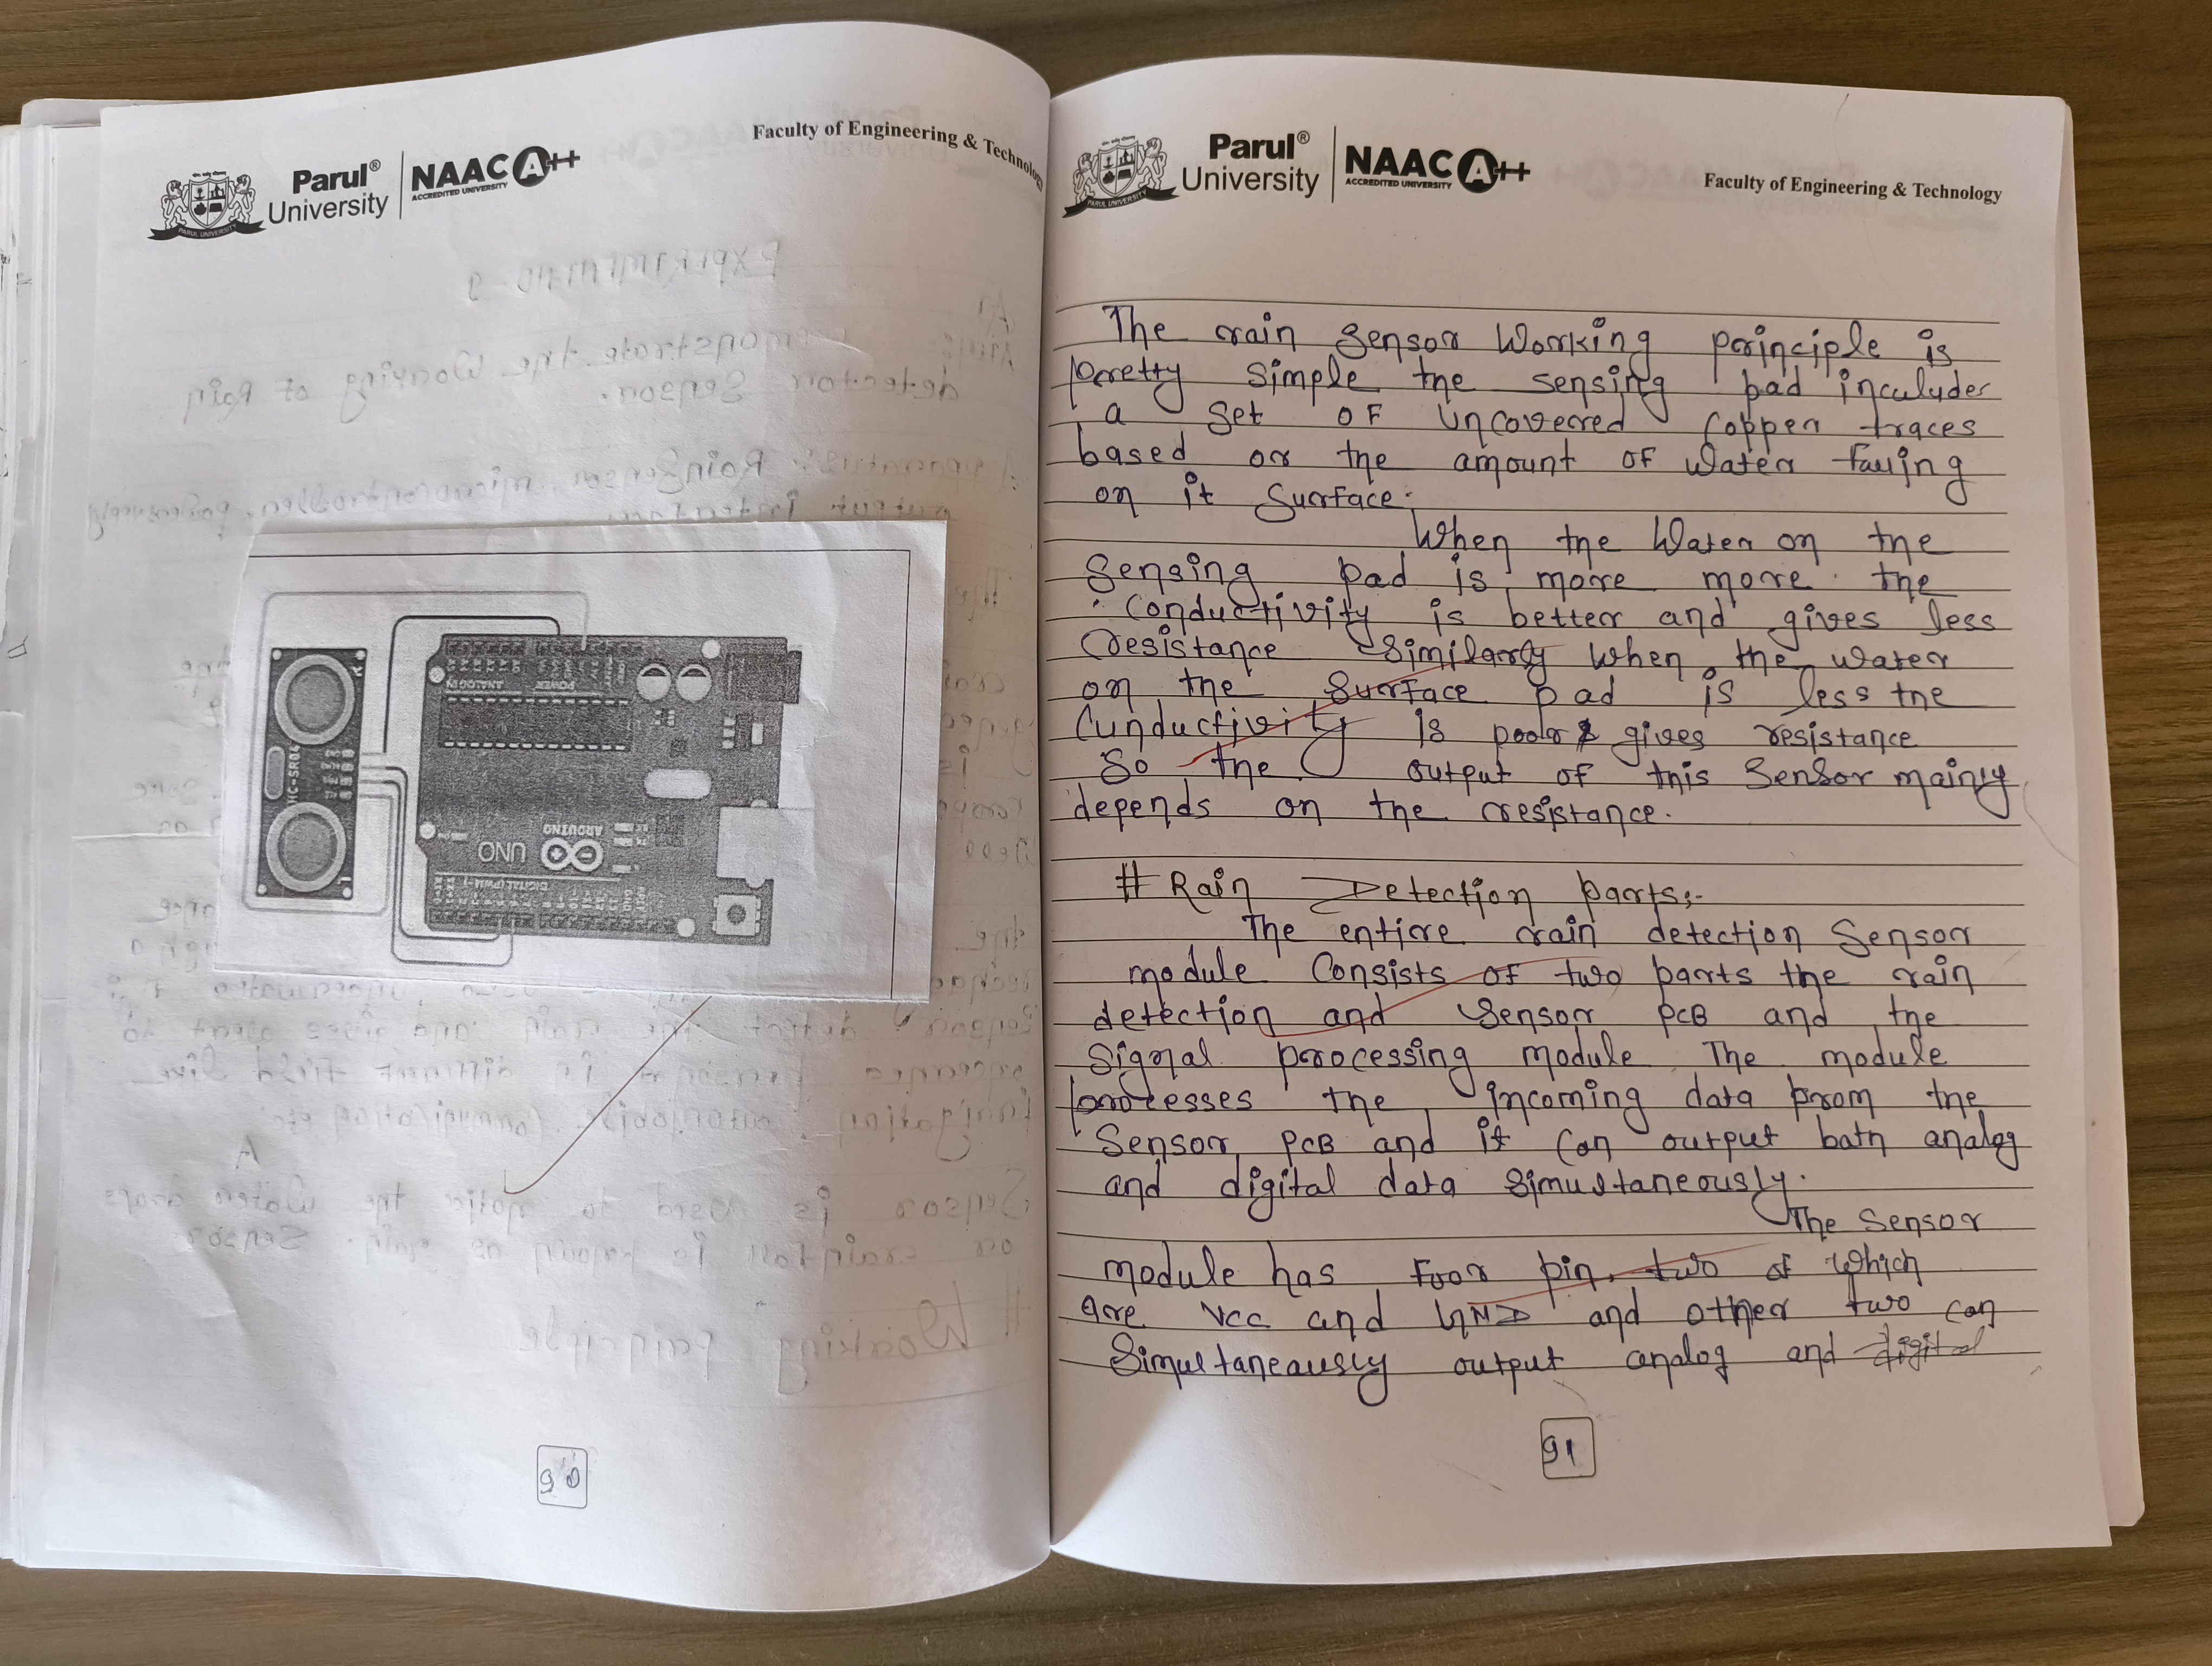 Parul®
University
NAAC A++
ACCREDITED UNIVERSITY
PARUL UNIVERSITY
Faculty of Engineering & Technology
HC-SR04
ANALOG IN
POWER
UNO
ARDUINO
DIGITAL (PWM~)
90
Parul®
University
NAAC A++
ACCREDITED UNIVERSITY
PARUL UNIVERSITY
Faculty of Engineering & Technology
The rain Sensor Working principle is
pretty simple the sensing pad inculudes
a set of uncovered copper traces
based on the amount of water falling
on it Surface.
When the Water on the
Sensing pad is more more the
Conductivity is better and gives less
resistance similarly when the water
on the Surface pad is less the
Cunductivity is poor & gives resistance
So the output of this Sensor mainly
depends on the resistance.
# Rain Detection parts:-
The entire rain detection Sensor
module Consists of two parts the rain
detection and Sensor PCB and the
Signal processing module The module
processes the incoming data from the
Sensor PCB and it can output bath analog
and digital data simultaneously.
The Sensor
module has Foor pin, two of which
are VCC and GND and other two can
Simultaneausly output analog and digital
91